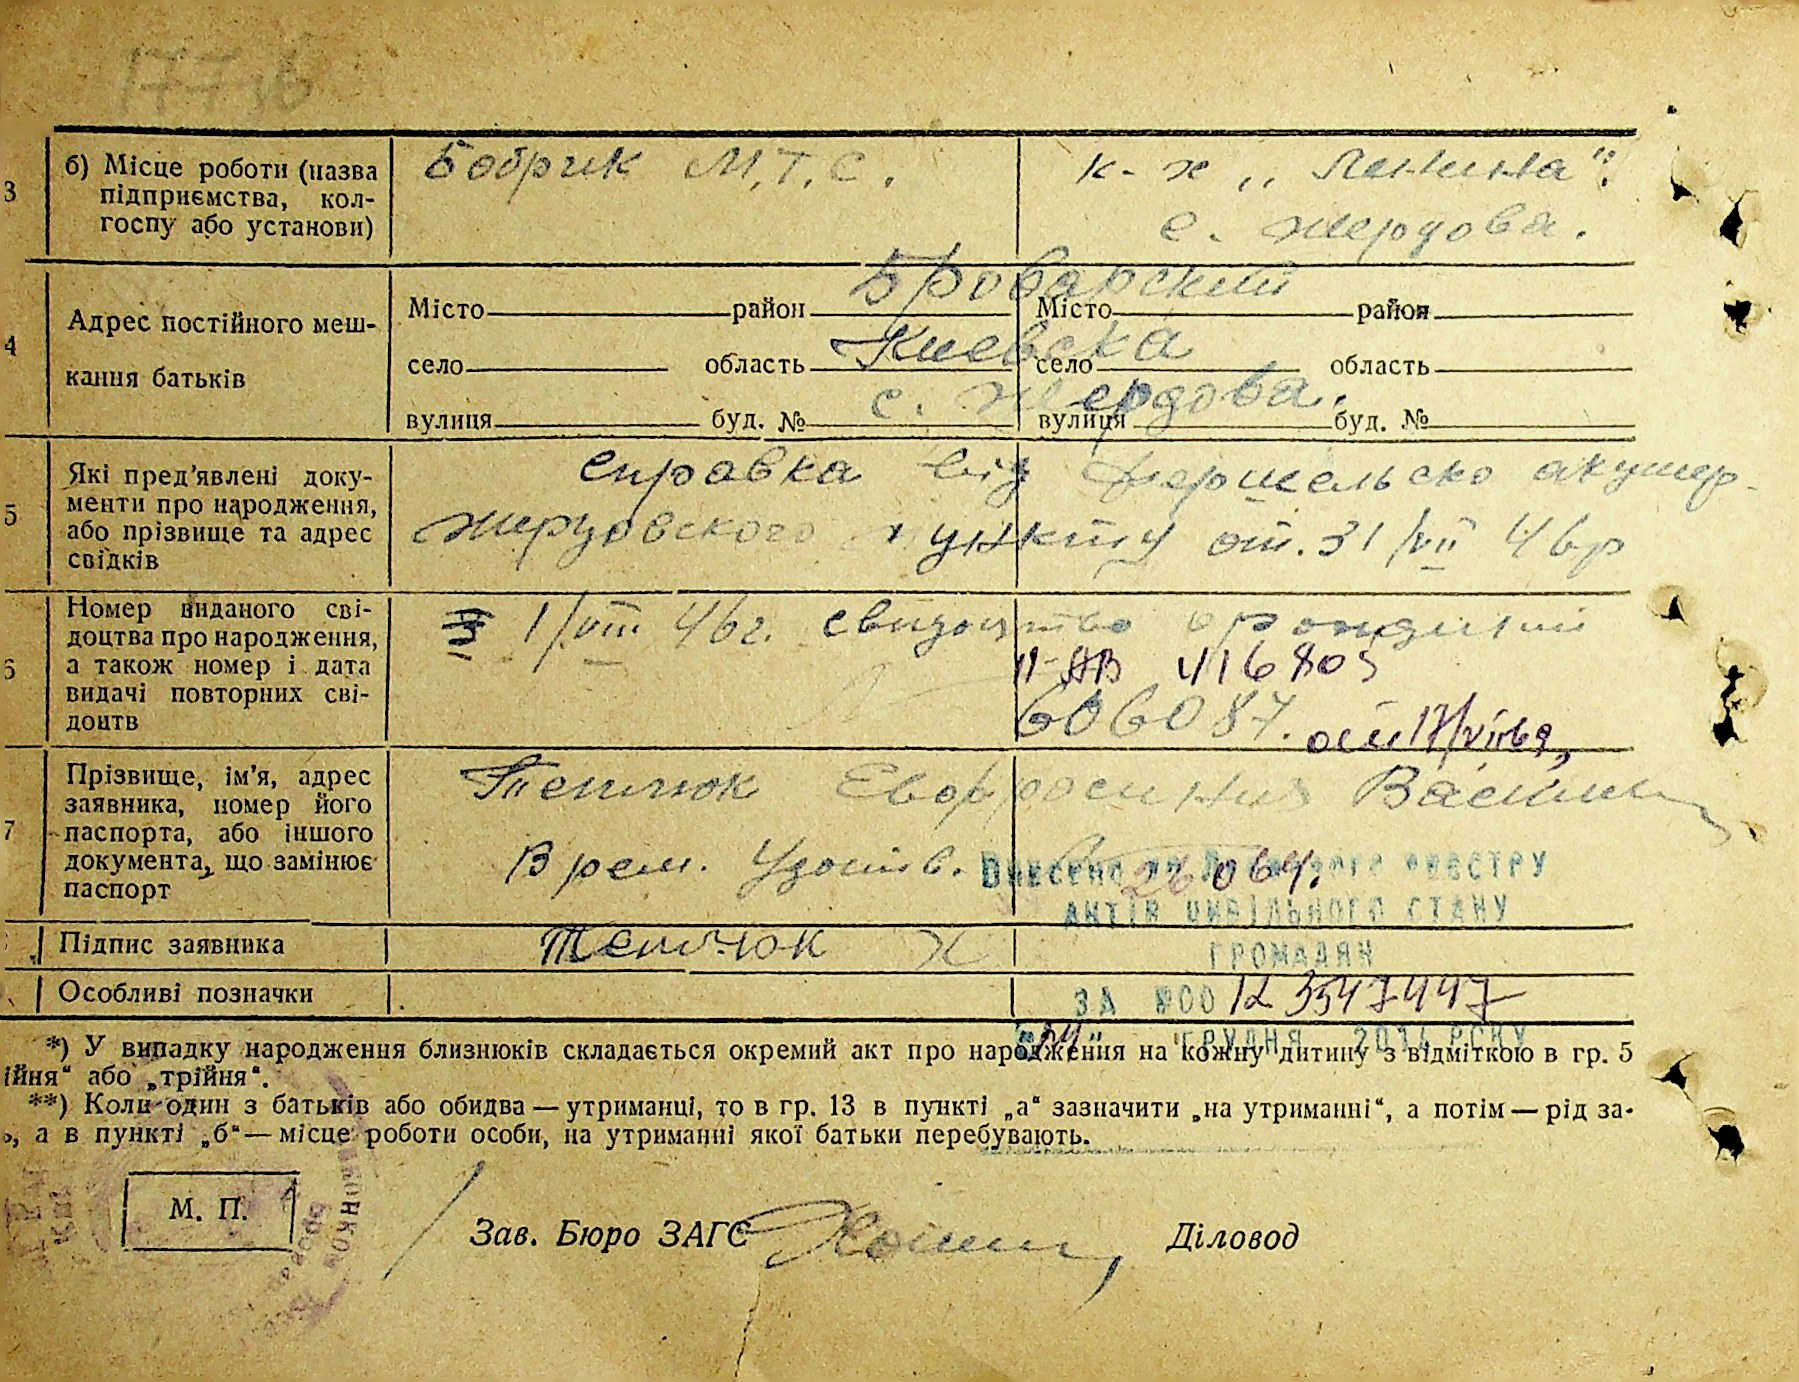 177 зв
3
б) Місце роботи (назва
підприємства, кол-
госпу або установи)
Бобрик М.Т.С.
к-х „Ленина“.
с. Жердова.
4
Адрес постійного меш-
кання батьків
Броварский
Місто район Місто район
Киевска
село область село область
с. Жердова.
вулиця буд. № вулиця буд. №
5
Які пред'явлені доку-
менти про народження,
або прізвище та адрес
свідків
Справка від фершельско акушер-
Жердовского пункту от. 31/VII 46р
6
Номер виданого сві-
доцтва про народження,
а також номер і дата
видачі повторних сві-
доцтв
1/VIII 46г. свидоцтво о рождении
II-АВ 416803
606087.
7
Прізвище, ім'я, адрес
заявника, номер його
паспорта, або іншого
документа, що замінює
паспорт
Евфросиния
Врем. Удостов. 26064.
Внесено до Державного реєстру
актів цивільного стану
громадян
Підпис заявника
Особливі позначки
за №00 123547447
грудня 2014 року
*) У випадку народження близнюків складається окремий акт про народження на кожну дитину з відміткою в гр. 5
ійня“ або „трійня“.
**) Коли один з батьків або обидва — утриманці, то в гр. 13 в пункті „а“ зазначити „на утриманні“, а потім — рід за-
, а в пункті „б“ — місце роботи особи, на утриманні якої батьки перебувають.
М. П.
Зав. Бюро ЗАГС
Діловод